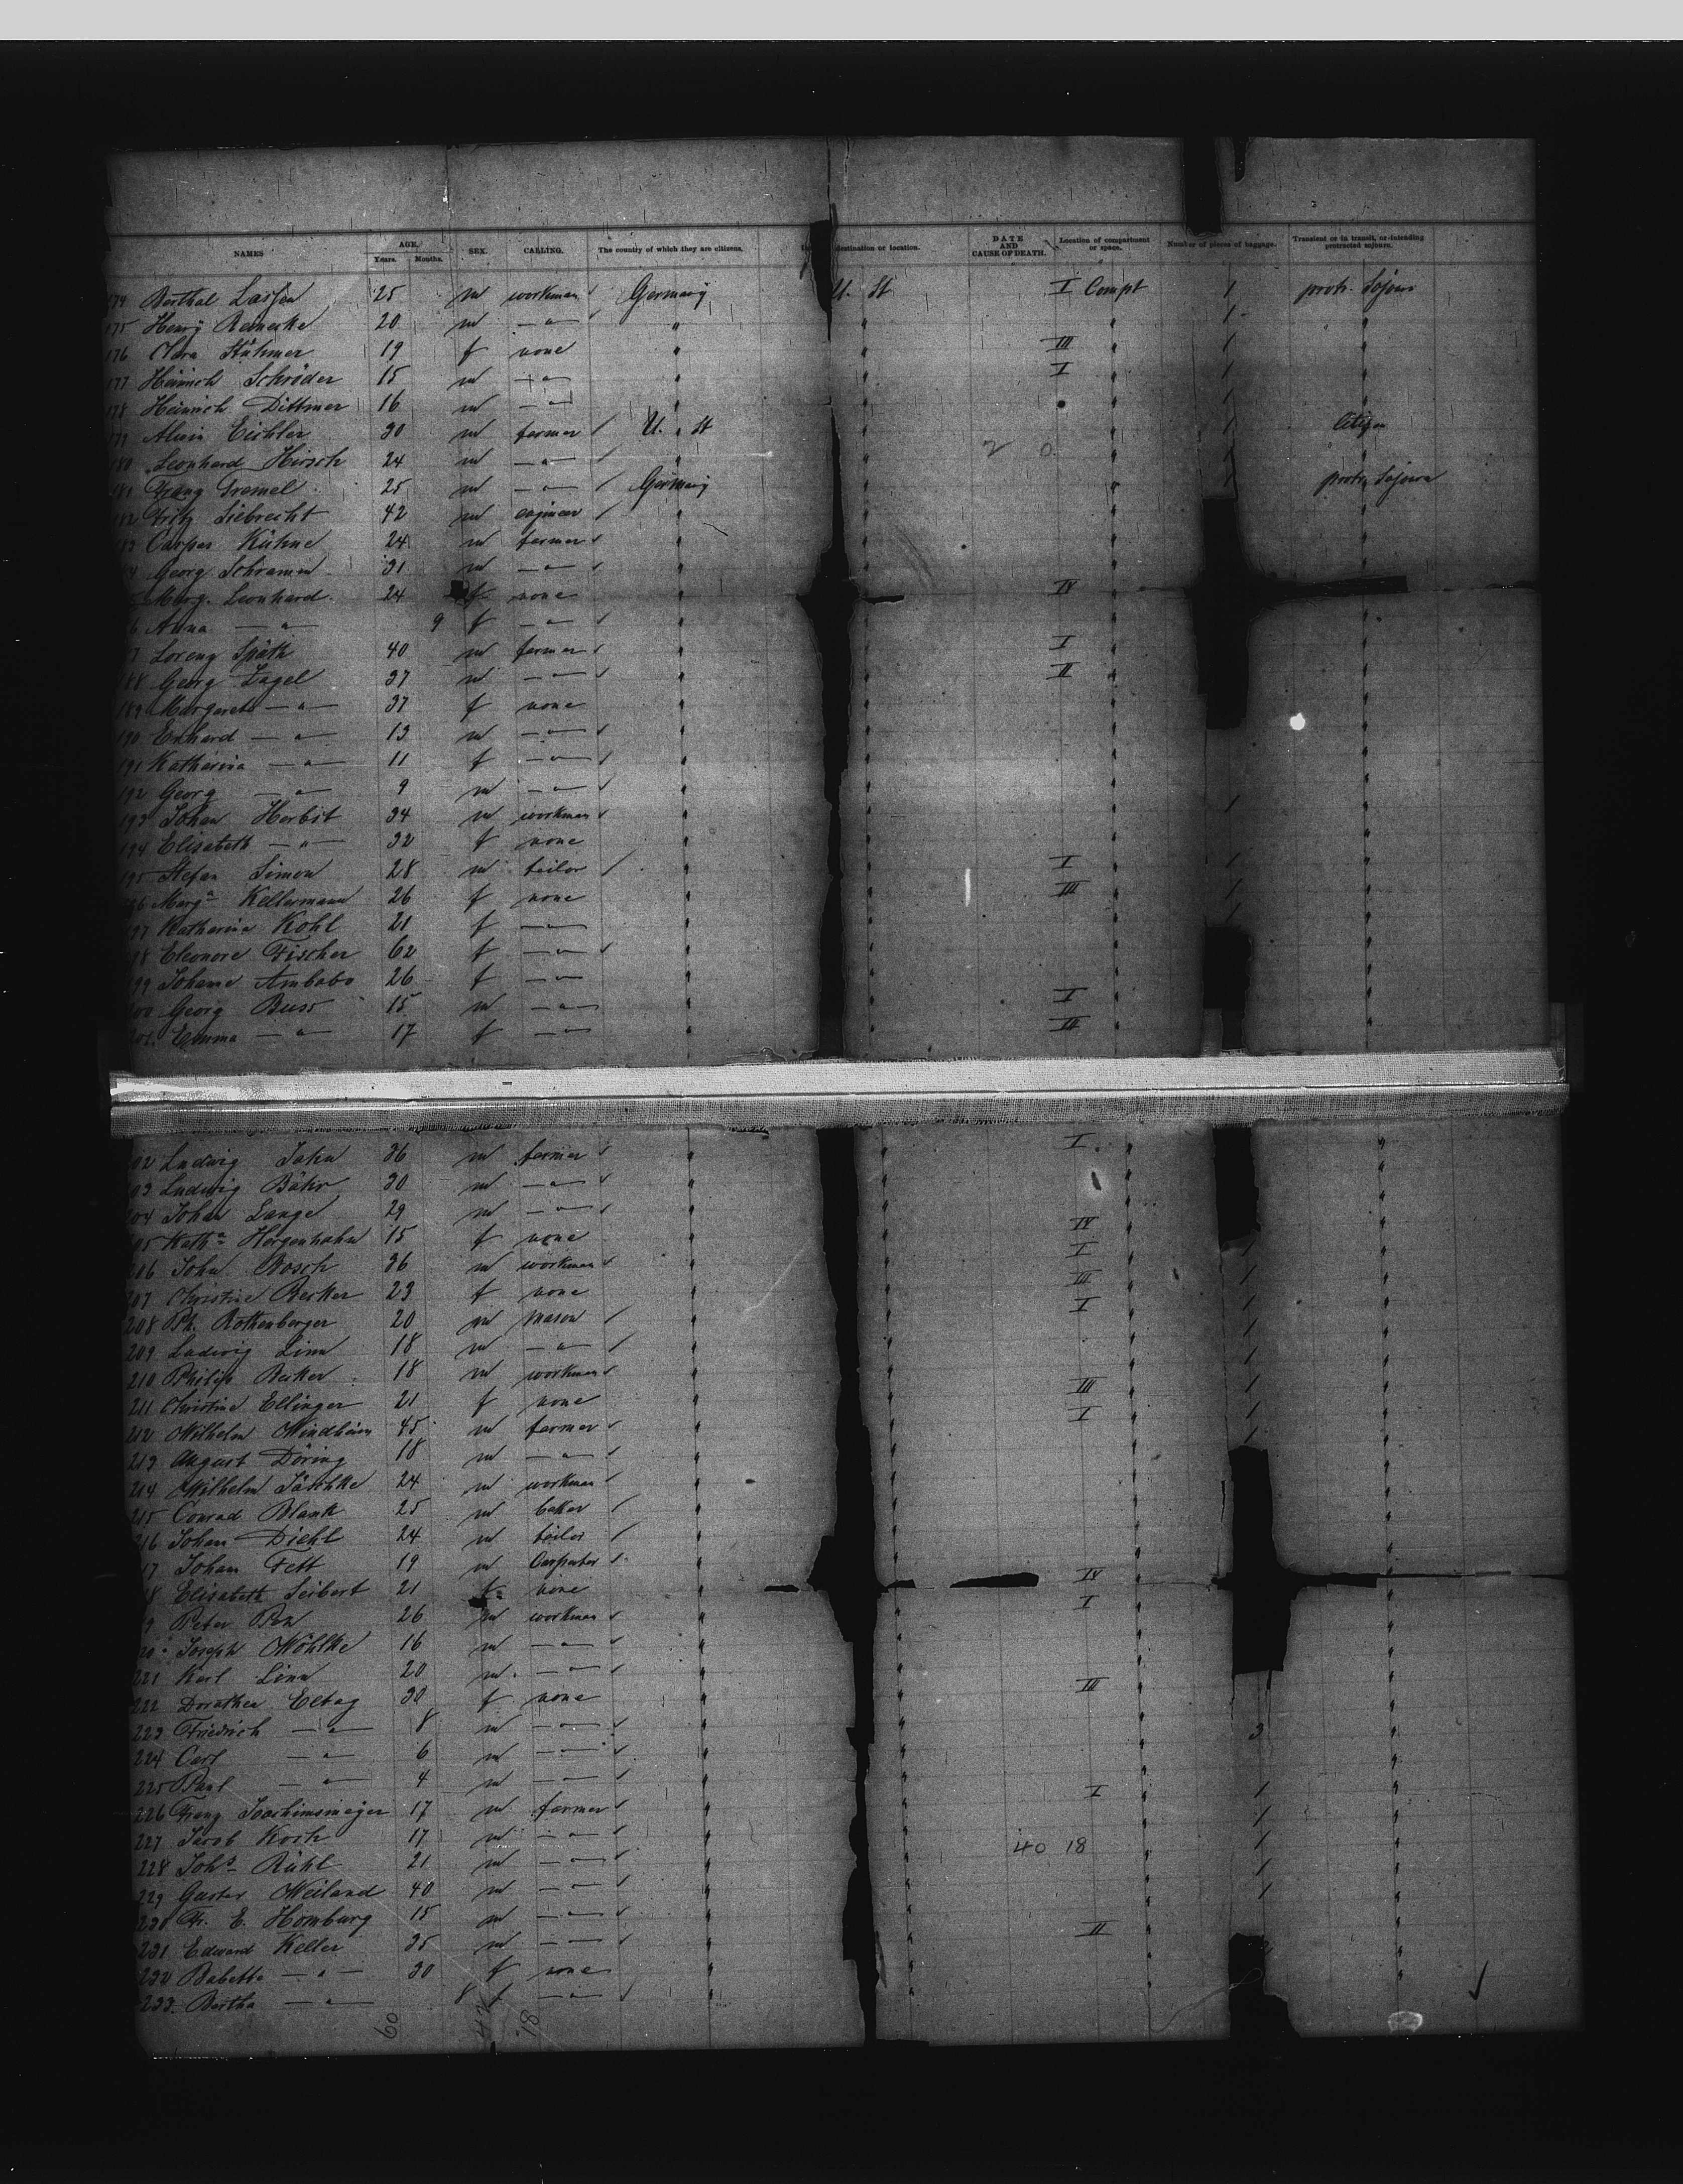 NAMES AGE. Years. Months. SEX. CALLING. The country of which they are citizens. destination or location. DATE AND CAUSE OF DEATH. Location of compartment or space. Number of pieces of baggage. Transient or in transit, or intending protracted sojourn.
Berthal 25 m workman Germany U. St I Compt 1 protr. Sojour
175 Henry Reinecke 20 m — " — " " " 1 "
176 Clara Stühmer 19 f none " " III " 1 "
177 Heinrich Schröder 15 m — " — " " I " 1 "
178 Heinrich Dittmer 16 m — " — " " " 1 "
179 Alwin Eichler 30 m farmer U. St " 1 Citizen
180 Leonhard Hirsch 24 m — " — " 2 0 " 1
181 Franz Gramel 25 m — " — Germany " " 1 protr. Sojourn
182 Fritz Siebrecht 42 m engineer " " " "
183 Caspar Kühne 24 m farmer " " " "
4 Georg Schramm 31 m — " — " " " "
Marg. Leonhard 24 f none " " IV " "
6 Anna — " — 9 f — " — " " " "
7 Lorenz Späth 40 m farmer " " I " "
188 Georg Zagel 37 m — " — " " II " "
189 Margareta — " — 37 f none " " " "
190 Erhard — " — 13 m — " — " " " "
191 Katharina — " — 11 f — " — " " " "
192 Georg — " — 9 m — " — " " " "
193 Johan Herbst 34 m workman " " " 1 "
194 Elisabeth — " — 32 f none " " " "
195 Stefan Simon 28 m tailor " " I " 1 "
196 Marg.a Kellermann 26 f none " " III " 1 "
197 Katharina Kohl 21 f — " — " " " 1 "
98 Eleonore Fischer 62 f — " — " " " "
199 Johanne 26 f — " — " " " "
200 Georg Buss 15 m — " — " " I " "
201. Emma — " — 17 f — " — " " III " "
02 Ludwig Jahn 36 m farmer " " I " "
03 Ludwig Bähr 30 m — " — " " " "
204 Johan Lange 29 m — " — " " " "
05 Kath.a Horgenhahn 15 f none " " IV " 1 "
206 John Bosch 36 m workman " " I " 1 "
207 Christine Becker 23 f none " " III " 1 "
208 Ph. Rothenberger 20 m mason " " I " 1 "
209 Ludwig Linn 18 m — " — " " " 1 "
210 Philip Becker 18 m workman " " " 1 "
211 Christine Ellinger 21 f none " " III " 1 "
212 Wilhelm Windheim 45 m farmer " " I " 1 "
213 August Döring 18 m — " — " " " "
214 Wilhelm Jäschke 24 m workman " " " "
215 Conrad Blank 25 m baker " " " "
216 Johan Diehl 24 m tailor " " " "
17 Johan Fett 19 m Carpenter " " " "
18 Elisabeth Seibert 21 f none " " IV " "
9 Peter 26 m workman " " I " "
20 Joseph Wöhlke 16 m — " — " " " "
221 Karl Linn 20 m — " — " " " "
222 Dorothea 30 f none " " III " "
223 Friedrich — " — 8 m — " — " " " 3 "
224 Carl — " — 6 m — " — " " " "
225 Paul — " — 4 m — " — " " I " 1 "
226 Franz Joachimsmeyer 17 m farmer " " " 1 "
227 Jacob Koch 17 m — " — " " 40 18 " 1 "
228 Joh.s Rühl 21 m — " — " " " 1 "
229 Gustav Weiland 40 m — " — " " " 1 "
230 Fr. E. Homburg 15 m — " — " " " "
231 Edward Keller 35 m — " — " " II " "
232 Babette — " — 30 f none " " " "
233. Bertha — " — 8 f — " — " " "
60 42 18